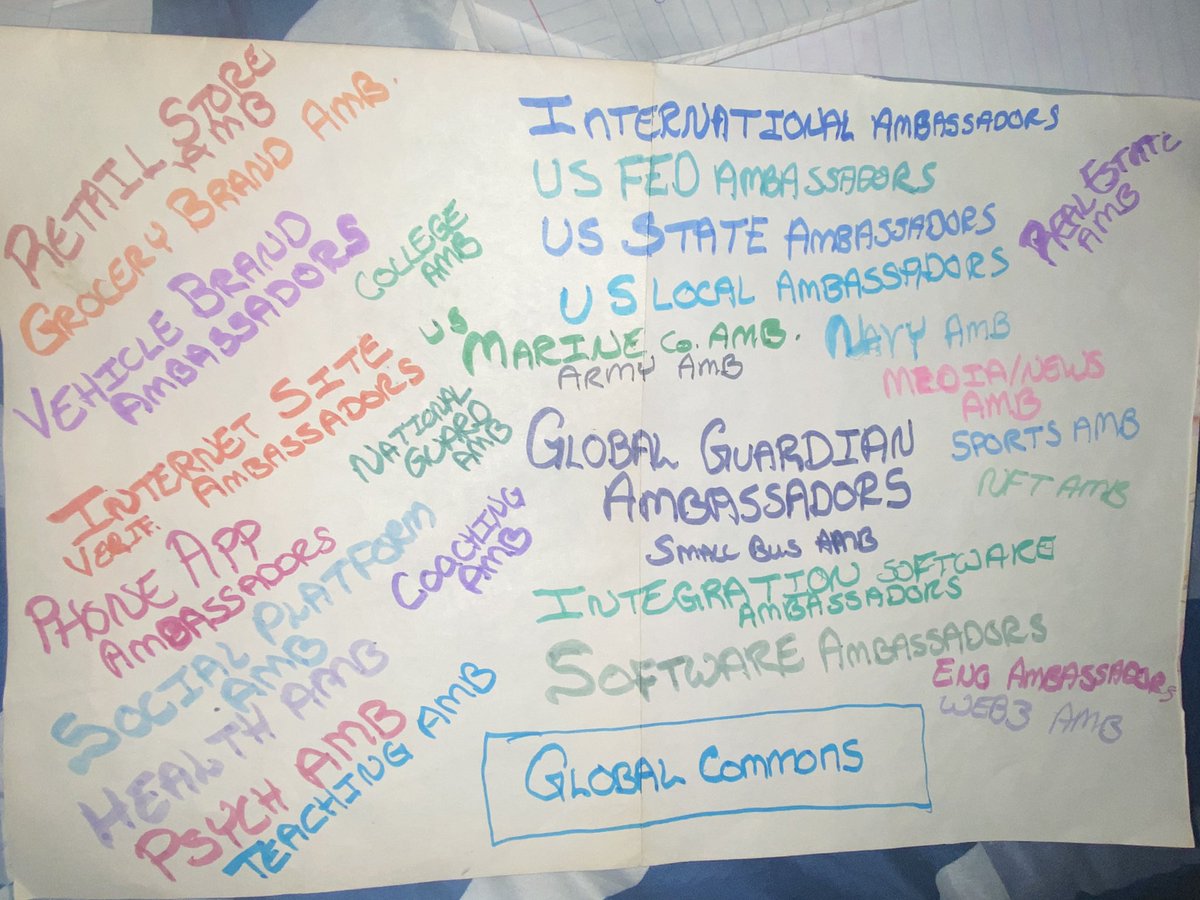 RETAIL STORE
AMB
GROCERY BRAND AMB.
VEHICLE BRAND
AMBASSADORS
COLLEGE
AMB
INTERNET SITE
VERIF. AMBASSADORS
NATIONAL
GUARD
AMB
PHONE APP
AMBASSADORS
COACHING
AMB
SOCIAL PLATFORM
AMB
HEALTH AMB
PSYCH AMB
TEACHING AMB
INTERNATIONAL AMBASSADORS
US FED AMBASSADORS
US STATE AMBASSADORS
US LOCAL AMBASSADORS
REAL ESTATE
AMB
US MARINE CO. AMB.
NAVY AMB
ARMY AMB
MEDIA/NEWS
AMB
GLOBAL GUARDIAN
AMBASSADORS
SPORTS AMB
NFT AMB
SMALL BUS AMB
INTEGRATION SOFTWARE
AMBASSADORS
SOFTWARE AMBASSADORS
ENG AMBASSADORS
WEB3 AMB
GLOBAL COMMONS